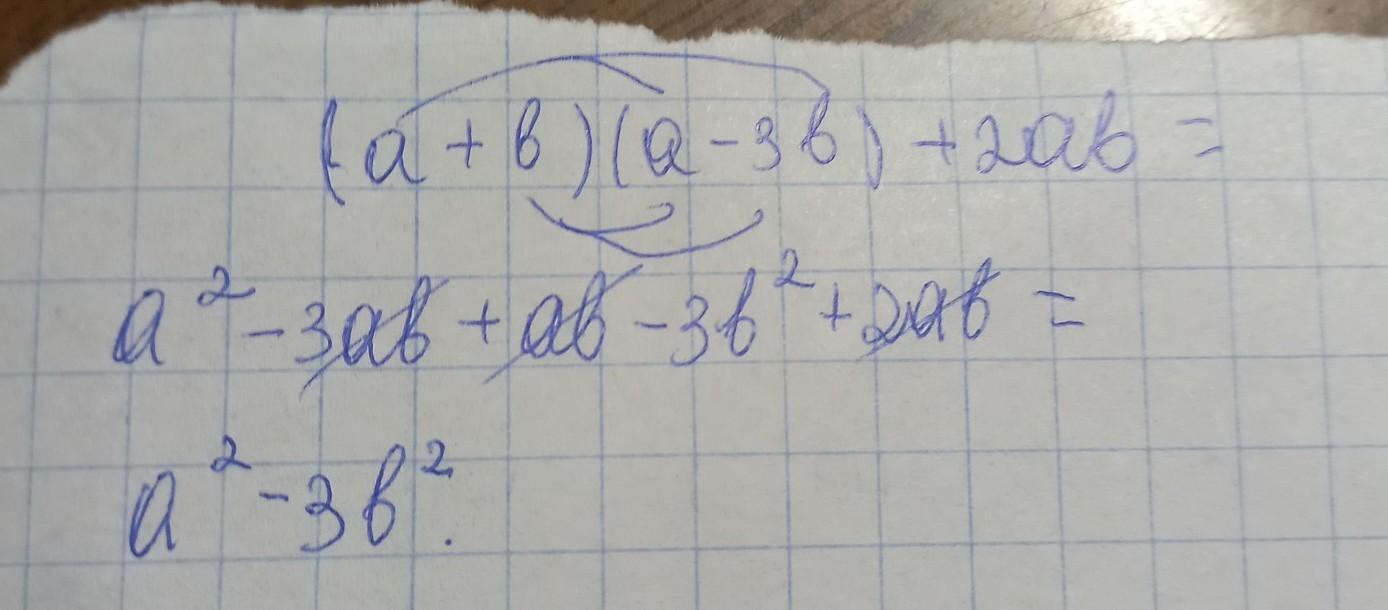 (a + b)(a - 3b) + 2ab =
a² - 3ab + ab - 3b² + 2ab =
a² - 3b².